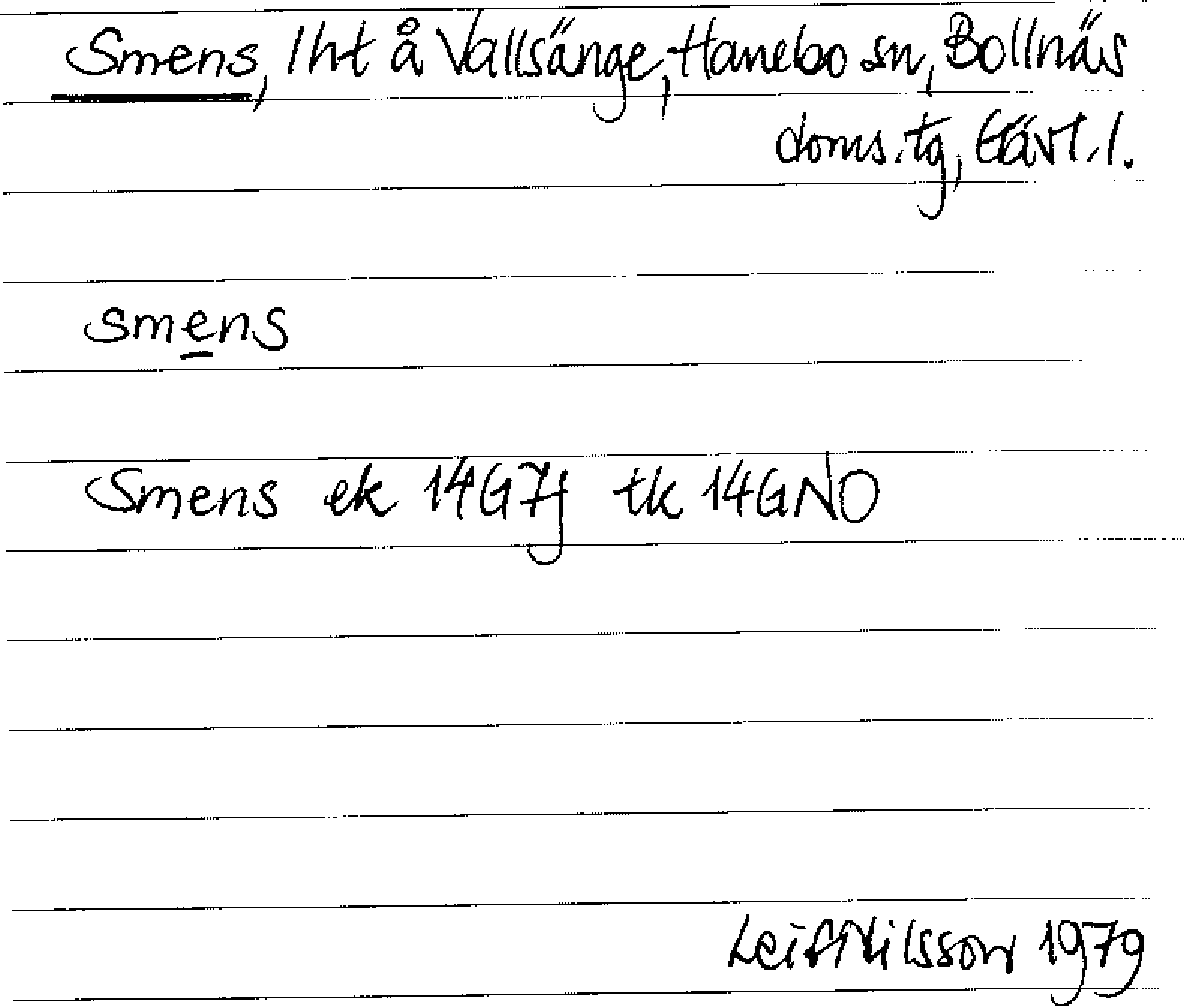 Smens, lht å Vallsänge, Hanebo sn, Bollnäs
doms.tg, Gävl.l.
smens
Smens ek 14G7j tk 14GNO
Leif Nilsson 1979